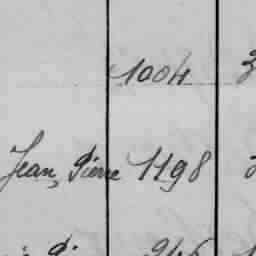 1004
Jean, Pierre 1198